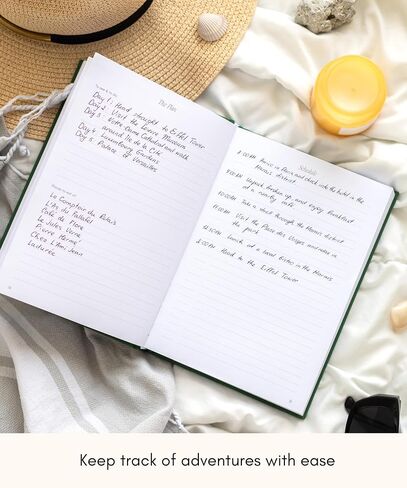 The Plan
Day 1: Head straight to Eiffel Tower
Day 2: Visit the Louvre Museum
Day 3: Notre Dame Cathedral and walk
around Île de la Cité
Day 4: Luxembourg Gardens
Day 5: Palace of Versailles
Le Comptoir du Relais
L'As du Fallafel
Café de Flore
Le Jules Verne
Pierre Hermé
Chez L'Ami Jean
Ladurée
Schedule
8:00AM Arrive in Paris and check into the hotel in the
Marais district
9:00AM Unpack, freshen up, and enjoy breakfast
at a nearby
10:00AM Take a stroll through the Marais district
11:00AM Visit the Place des Vosges and relax in
the park
12:00PM Lunch at a local bistro in the Marais
Head to the Eiffel Tower
Keep track of adventures with ease